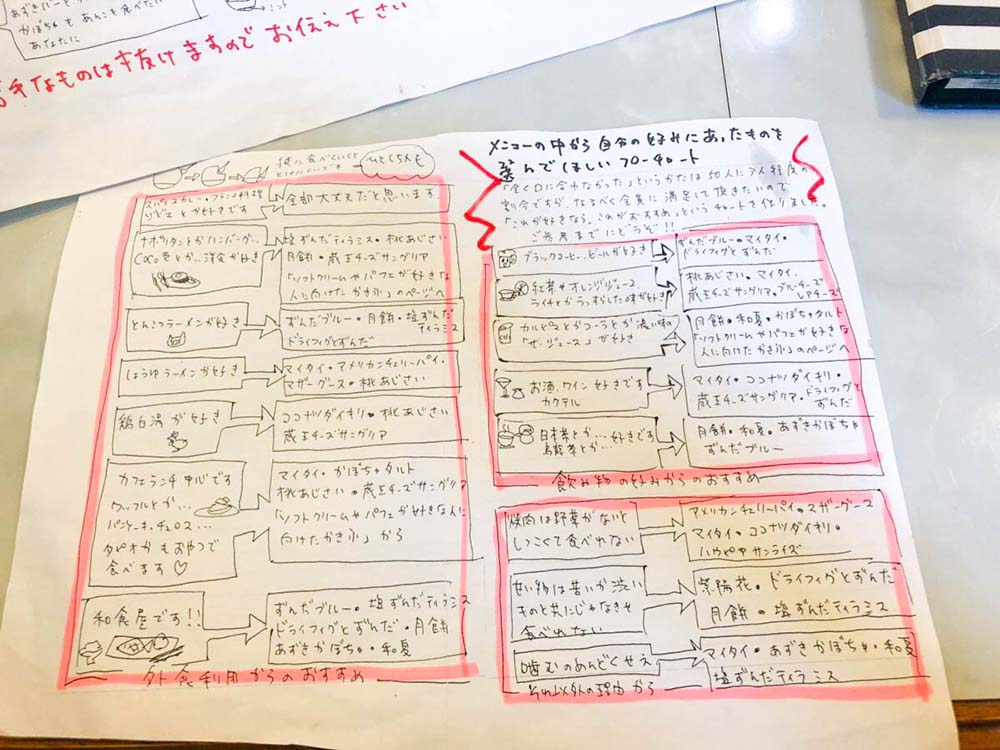 あずきバーと
かぼちゃもあんこも食べたい
あなたに
ミント
手なものは抜けますので お伝え下さい
メニューの中から自分の好みにあったものを
選んでほしいフローチャート
「全く口に合わなかった」というかたは50人に1人程度の
割合ですが、なるべく全員に満足して頂きたいので
「これが好きなら、これがおすすめ」というチャートを作りました。
ご参考までにどうぞ!!
スパイスカレー・フランス料理
ジビエとか好きです
全部大丈夫だと思います
ナポリタンとかハンバーグ…
COCO壱とか…洋食が好き
塩ずんだティラミス・桃あじさい
月餅・蔵王チーズサングリア
「ソフトクリームやパフェが好きな
人に向けたかき氷」のページへ
とんこつラーメンが好き
ずんだブルー・月餅・塩ずんだ
ティラミス
ドライフィグとずんだ
しょうゆラーメンが好き
マイタイ・アメリカンチェリーパイ・
マザーグース・桃あじさい
鶏白湯が好き
ココナツダイキリ・桃あじさい
蔵王チーズサングリア
カフェランチ中心です
ワッフルとか…
パンケーキ、チュロス…
タピオカもおやつで
食べます♡
マイタイ・かぼちゃタルト
桃あじさい・蔵王チーズサングリア
「ソフトクリームやパフェが好きな人に
向けたかき氷」から
和食屋です!!
ずんだブルー・塩ずんだティラミス
ドライフィグとずんだ・月餅
あずきかぼちゃ・和憂
外食利用からのおすすめ
ブラックコーヒー、ビールが好き
ずんだブルー・マイタイ・
ドライフィグとずんだ
紅茶やオレンジジュース、
ライチとかうっすらした味が好き
桃あじさい、マイタイ、
蔵王チーズサングリア、ブルーチーズ
レアチーズ
カルピスとかコーラとか濃い味の
「ザ、ジュース」が好き
月餅・和憂・かぼちゃタルト
「ソフトクリームやパフェが好きな
人に向けたかき氷」のページへ
お酒、ワイン好きです
カクテル
マイタイ・ココナツダイキリ・
蔵王チーズサングリア・ドライフィグと
ずんだ
日本茶とか…好きです
烏龍茶とか…
月餅・和憂・あずきかぼちゃ
ずんだブルー
飲み物の好みからのおすすめ
焼肉は野菜がないと
しつこくて食べれない
アメリカンチェリーパイ・マザーグース
マイタイ・ココナツダイキリ・
ハウピアサンライズ
甘い物は苦いか渋い
ものと共にじゃなきゃ
食べれない
紫陽花・ドライフィグとずんだ
月餅・塩ずんだティラミス
噛むのめんどくせえ
マイタイ・あずきかぼちゃ・和憂
塩ずんだティラミス
それ以外の理由から